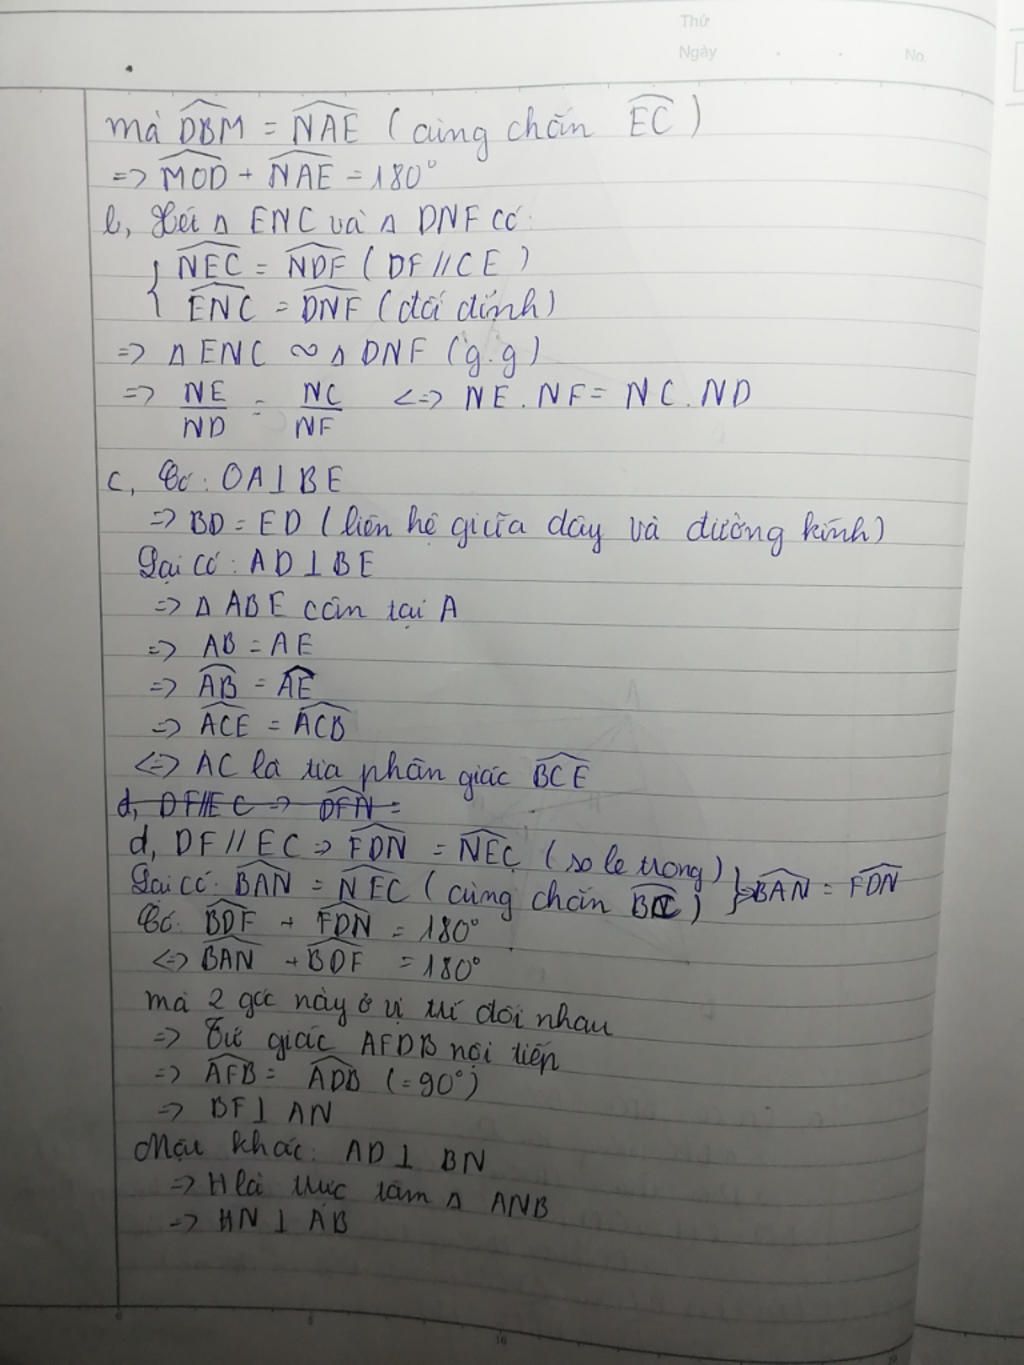 Thứ
Ngày . . No.
mà DBM = NAE (cùng chắn EC)
=> MOD + NAE = 180°
b, Xét Δ ENC và Δ DNF có:
{ NEC = NDF (DF // CE)
ENC = DNF (đối đỉnh)
=> Δ ENC ∽ Δ DNF (g.g)
=> NE/ND = NC/NF <=> NE . NF = NC . ND
c, Có: OA ⊥ BE
=> BD = ED (liên hệ giữa dây và đường kính)
Lại có: AD ⊥ BE
=> Δ ABE cân tại A
=> AB = AE
=> AB = AE
=> ACE = ACB
<=> AC là tia phân giác BCE
d, DF//EC => DFN =
d, DF // EC => FDN = NEC (so le trong)
Lại có: BAN = NEC (cùng chắn BC) } => BAN = FDN
Có: BDF + FDN = 180°
<=> BAN + BDF = 180°
mà 2 góc này ở vị trí đối nhau
=> Tứ giác AFDB nội tiếp
=> AFB = ADB (= 90°)
=> BF ⊥ AN
Mặt khác: AD ⊥ BN
=> H là trực tâm Δ ANB
=> HN ⊥ AB